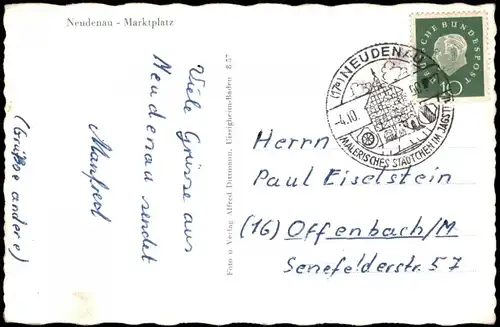 Neudenau - Marktplatz
Viele Grüsse aus
Neudenau sendet
Manfred
(Grüße andere)
Foto u Verlag Alfred Dittmann, Uissigheim-Baden 8/57
(17a) NEUDENAU
-4.10.
MALERISCHES STÄDTCHEN IM JAGSTTAL
DEUTSCHE BUNDESPOST
10
Herrn
Paul Eiselstein
(16) Offenbach/M
Senefelderstr. 57